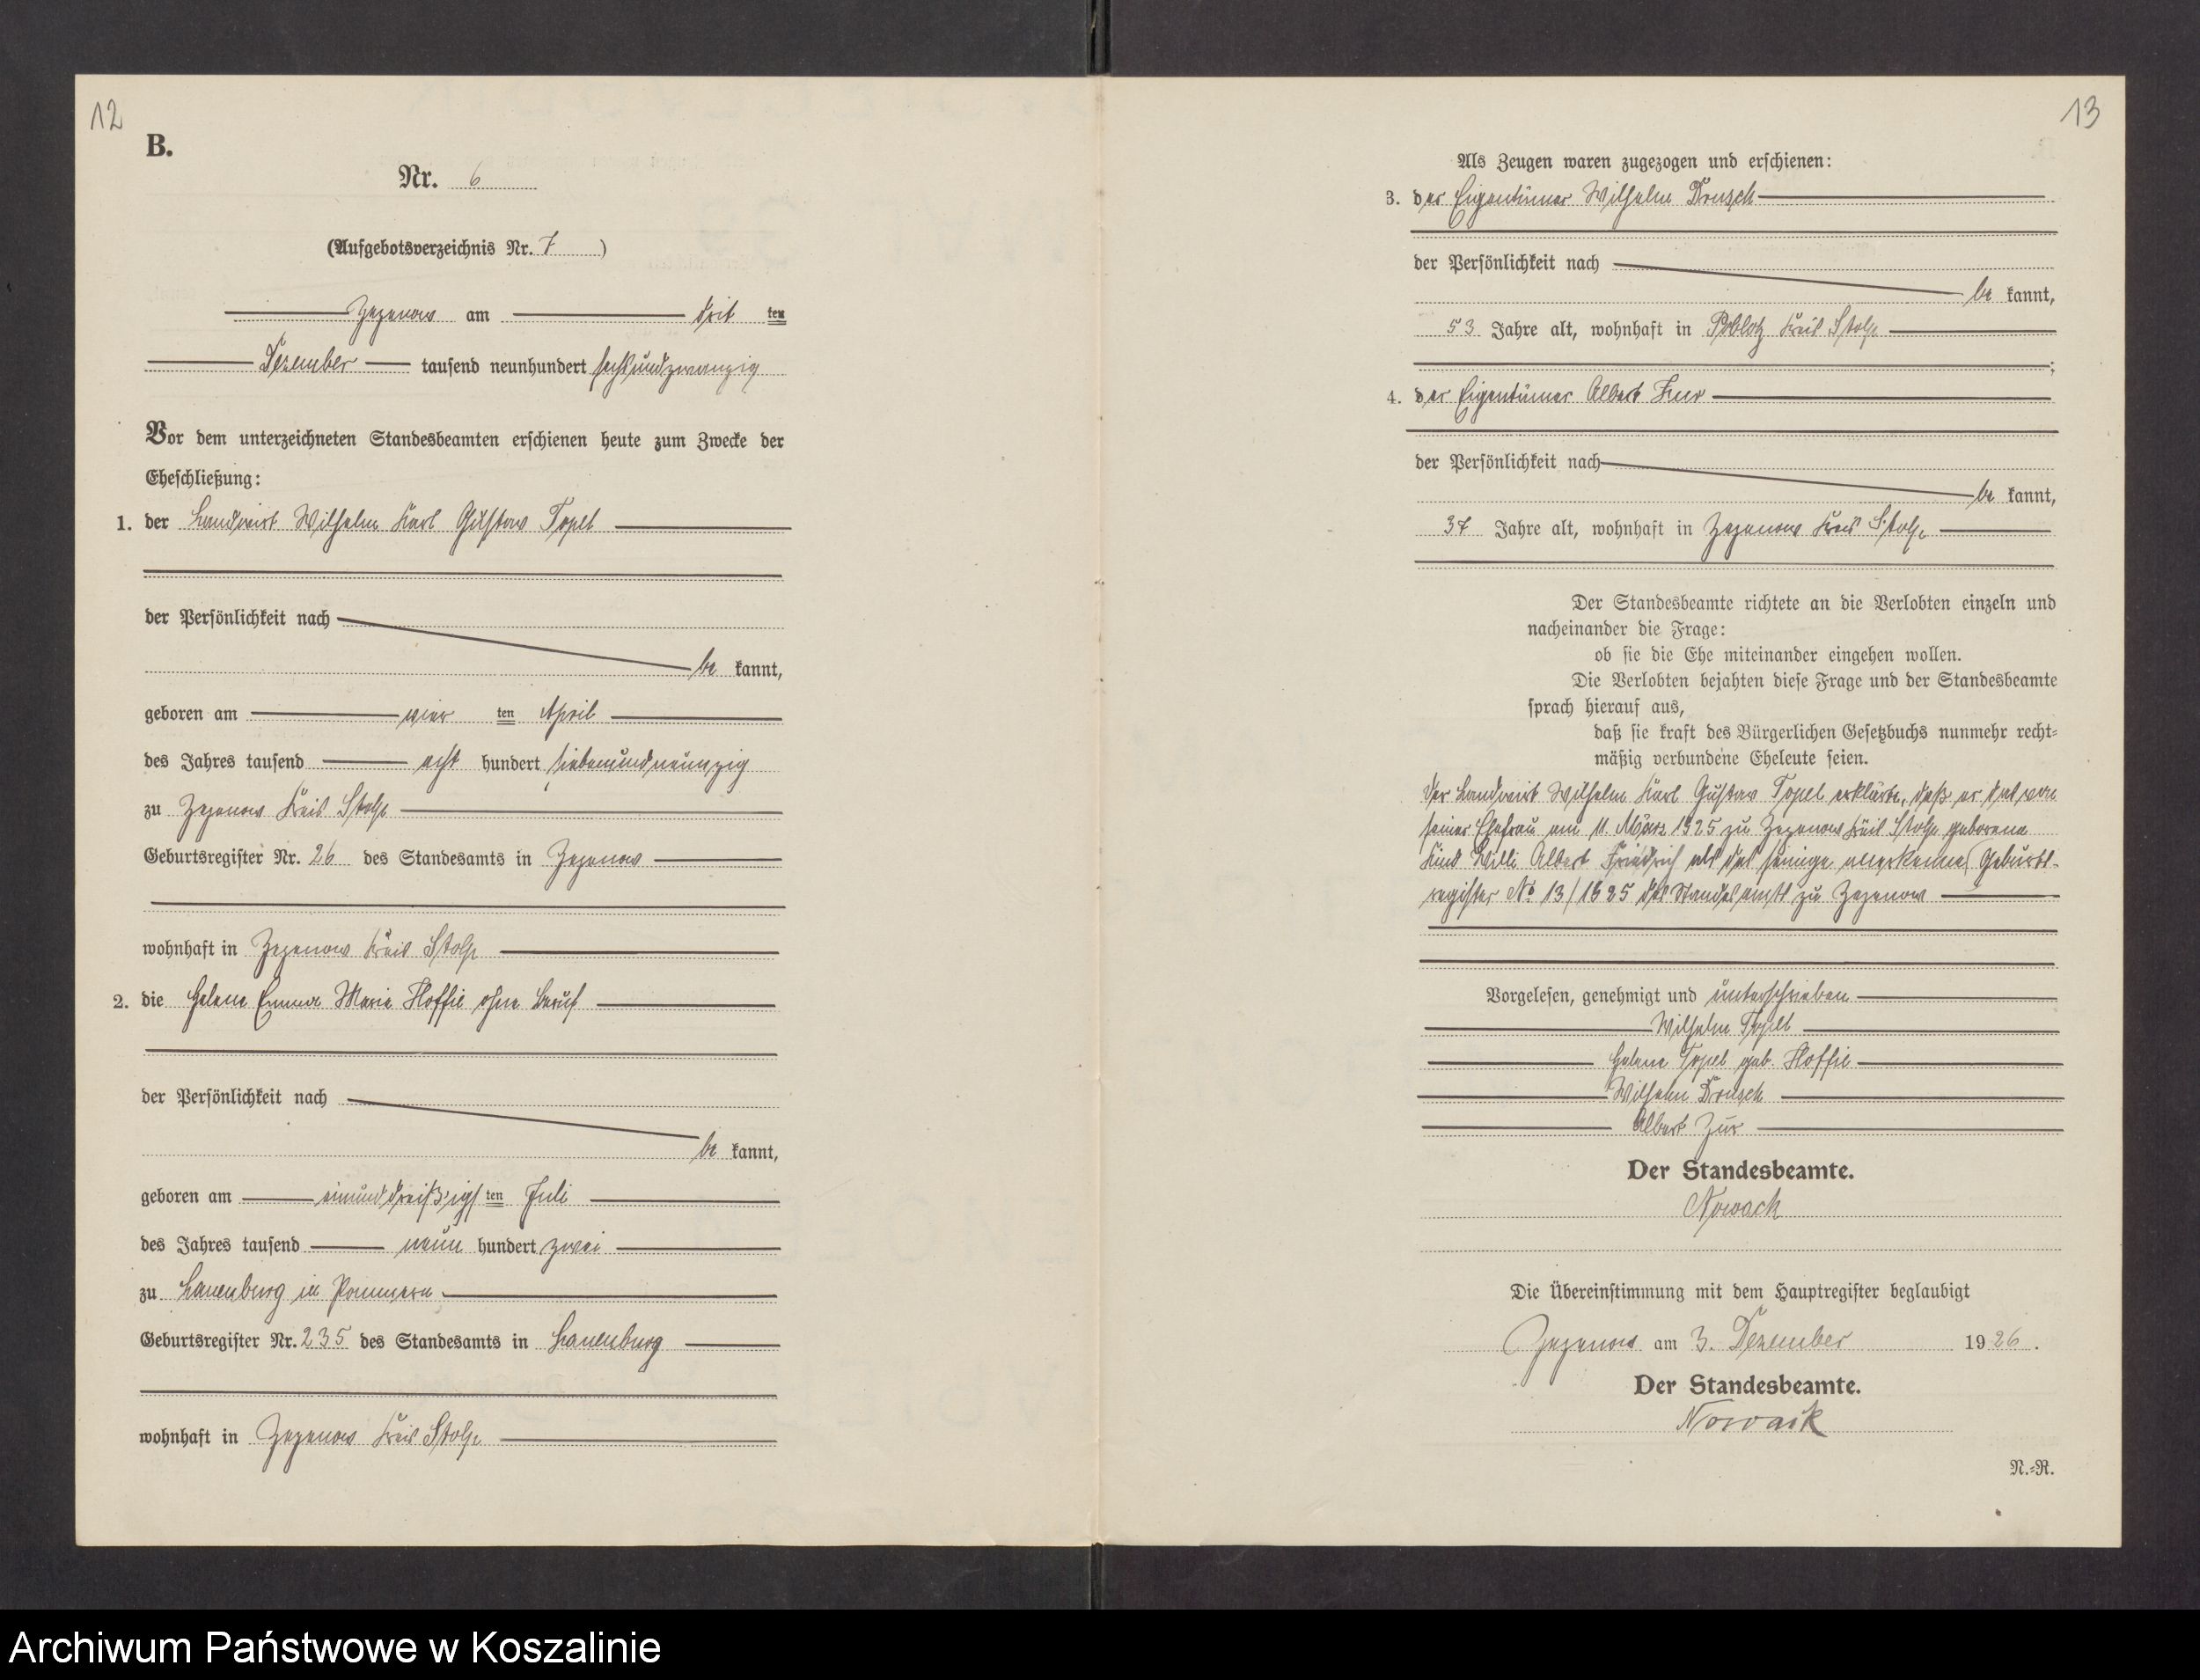 12
B.
Nr. 6
(Aufgebotsverzeichnis Nr. 7)
Zezenow am drit ten
Dezember tausend neunhundert sechsundzwanzig
Vor dem unterzeichneten Standesbeamten erschienen heute zum Zwecke der
Eheschließung:
1. der Landwirt Wilhelm Karl Gustav Topel
der Persönlichkeit nach
be kannt,
geboren am vier ten April
des Jahres tausend acht hundert siebenundneunzig
zu Zezenow Kreis Stolp
Geburtsregister Nr. 26 des Standesamts in Zezenow
wohnhaft in Zezenow Kreis Stolp
2. die Helene Emma Marie Hoffie ohne Beruf
der Persönlichkeit nach
be kannt,
geboren am einunddreißigs ten Juli
des Jahres tausend neun hundert zwei
zu Lauenburg in Pommern
Geburtsregister Nr. 235 des Standesamts in Lauenburg
wohnhaft in Zezenow Kreis Stolp
13
Als Zeugen waren zugezogen und erschienen:
3. der Eigentümer Wilhelm
der Persönlichkeit nach
be kannt,
53 Jahre alt, wohnhaft in Poblotz Kreis Stolp
;
4. der Eigentümer Albert Zur
der Persönlichkeit nach
be kannt,
37 Jahre alt, wohnhaft in Zezenow Kreis Stolp
Der Standesbeamte richtete an die Verlobten einzeln und
nacheinander die Frage:
ob sie die Ehe miteinander eingehen wollen.
Die Verlobten bejahten diese Frage und der Standesbeamte
sprach hierauf aus,
daß sie kraft des Bürgerlichen Gesetzbuchs nunmehr recht-
mäßig verbundene Eheleute seien.
Der Landwirt Wilhelm Karl Gustav Topel erklärte, daß er das von
seiner Ehefrau am 11. März 1925 zu Zezenow Kreis Stolp geborene
Kind Willi Albert Friedrich als das seinige anerkenne, Geburts-
register No 13/1925 des Standesamts zu Zezenow
Vorgelesen, genehmigt und unterschrieben
Wilhelm Topel
Helene Topel geb. Hoffie
Wilhelm
Albert Zur
Der Standesbeamte.
Nowack
Die Übereinstimmung mit dem Hauptregister beglaubigt
Zezenow am 3. Dezember 1926.
Der Standesbeamte.
Nowack
N.-R.
Archiwum Państwowe w Koszalinie